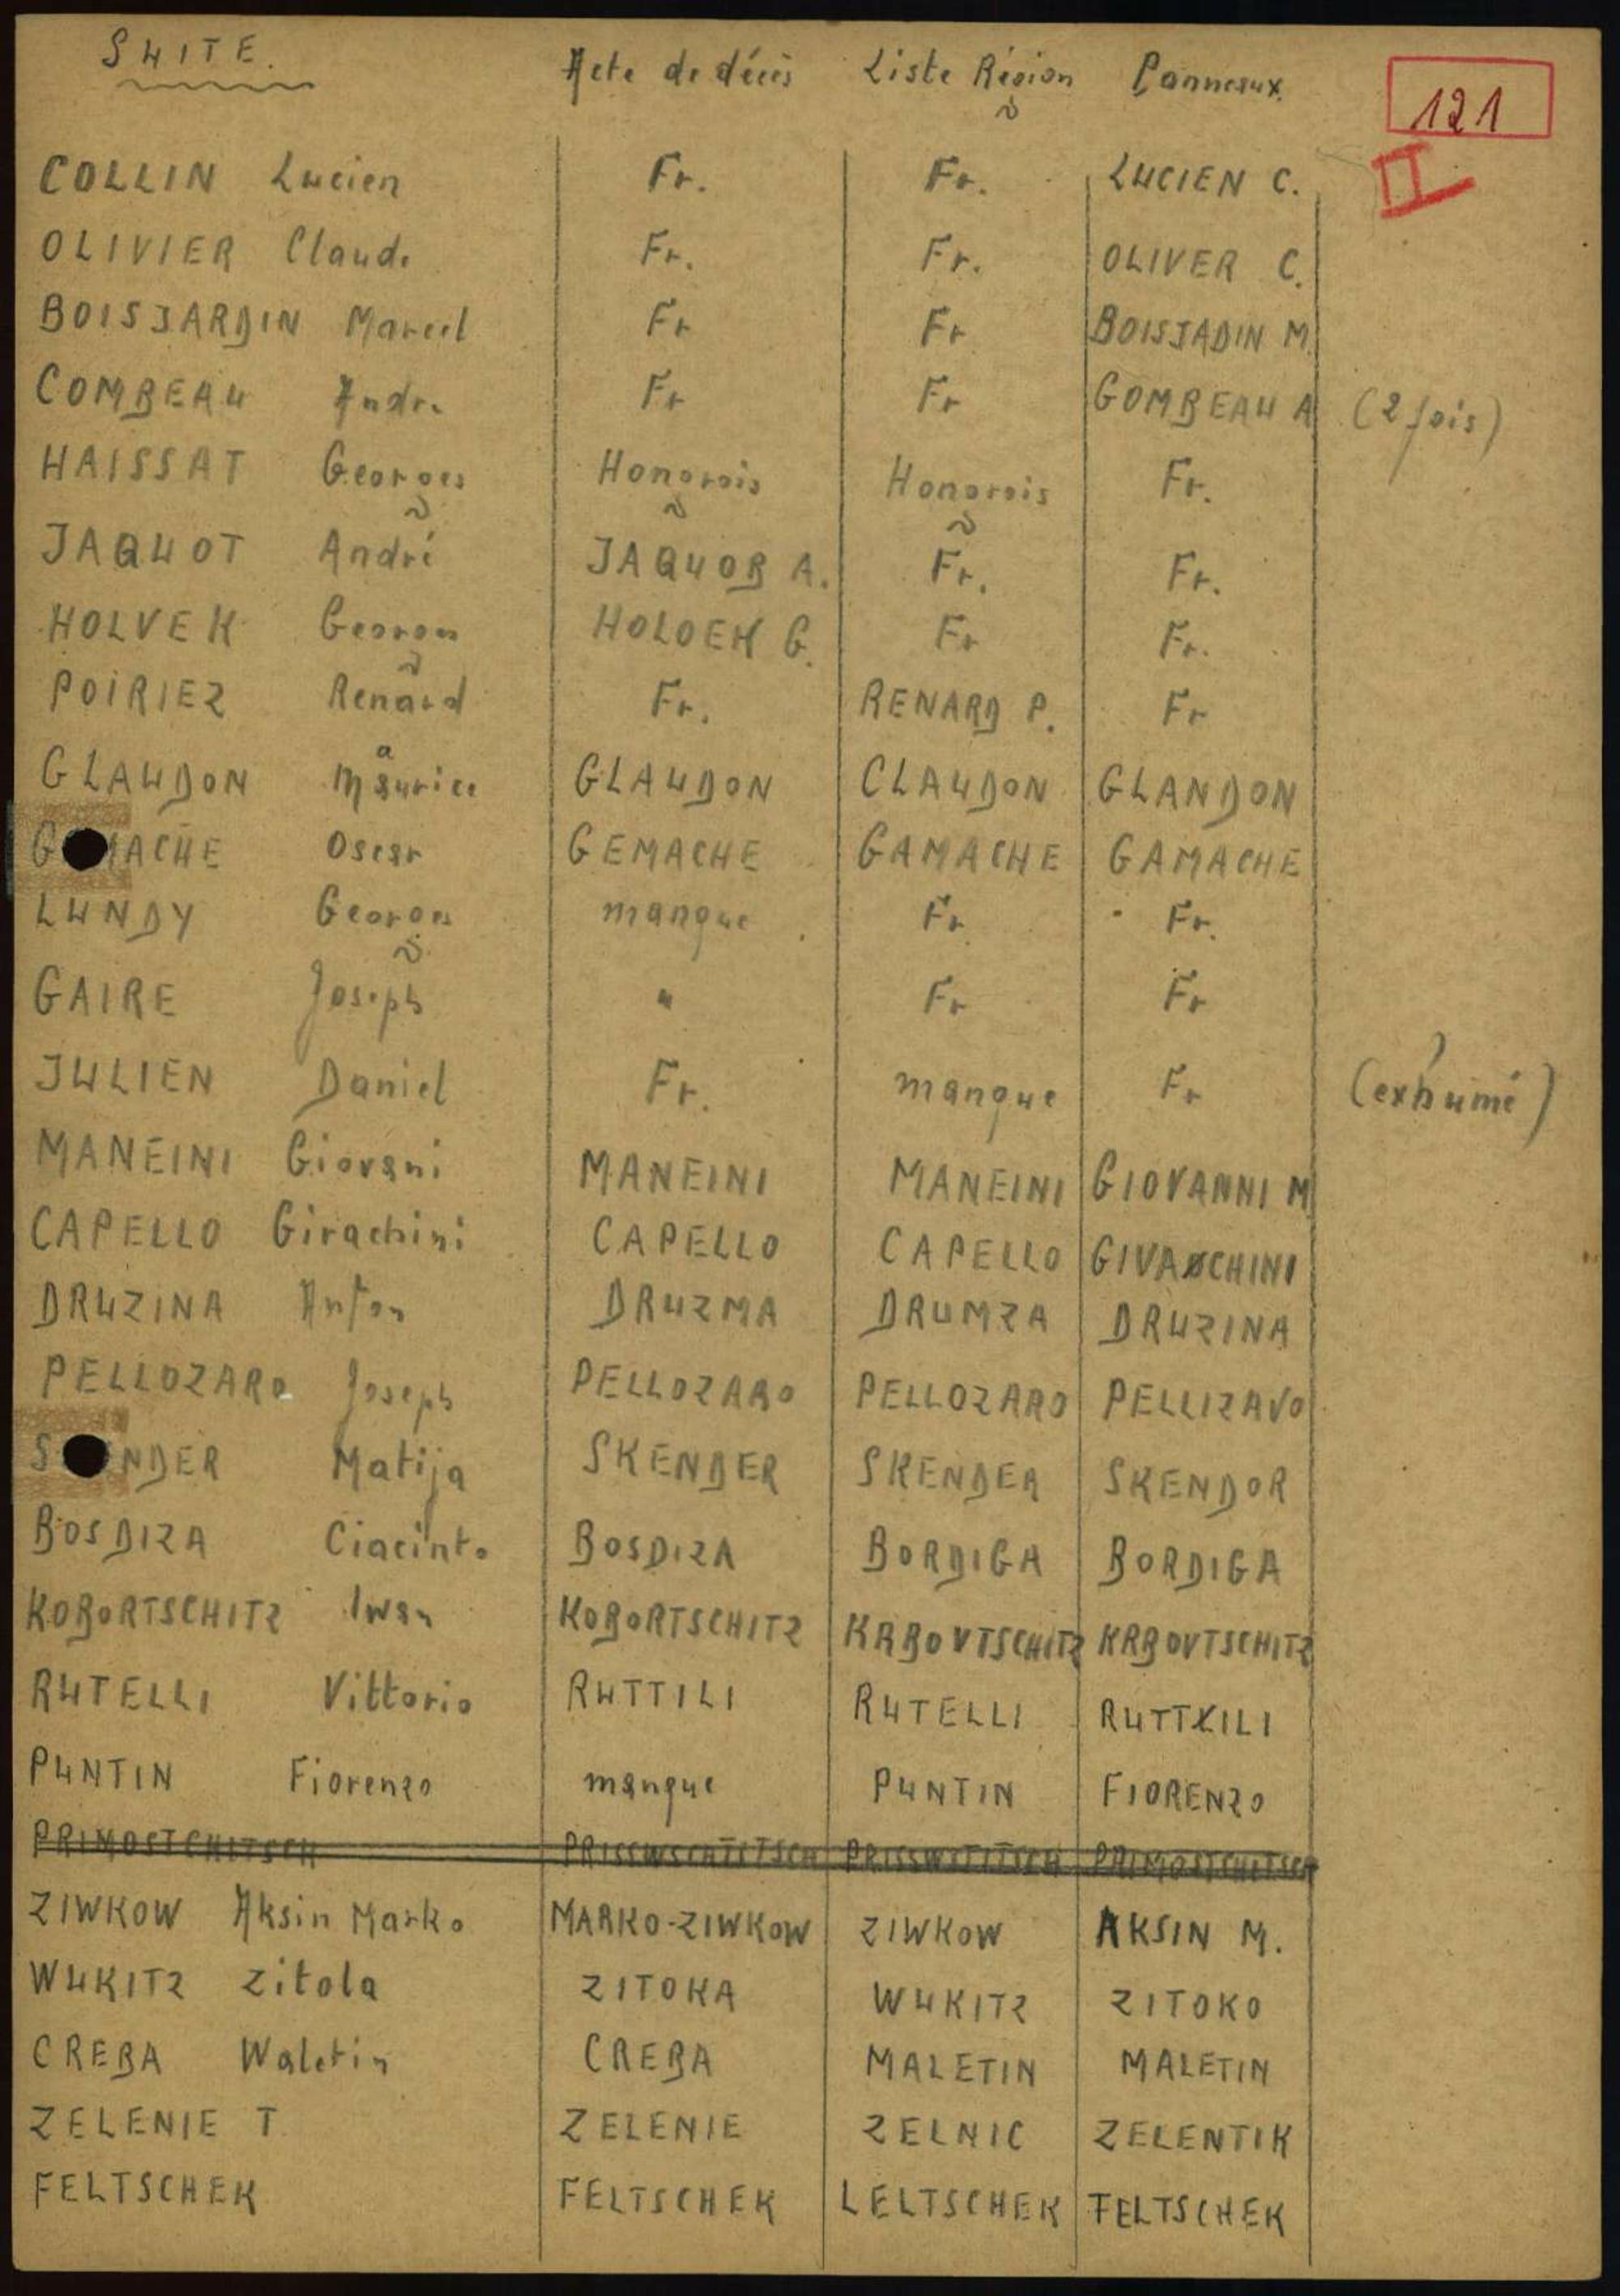 SUITE. Acte de décès Liste Région Panneaux. 121
II
COLLIN Lucien Fr. Fr. LUCIEN C.
OLIVIER Claude Fr. Fr. OLIVER C.
BOISJARDIN Marcel Fr Fr BOISJADIN M.
COMBEAU André Fr Fr GOMBEAU A (2 fois)
HAISSAT Georges Hongrois Hongrois Fr.
JAQUOT André JAQUOB A. Fr. Fr.
HOLVEK Georges HOLOEK G. Fr Fr.
POIRIEZ Renard Fr. RENARD P. Fr
GLAUDON Maurice GLAUDON CLAUDON GLANDON
G MACHE Oscar GEMACHE GAMACHE GAMACHE
LUNDY Georges manque Fr Fr.
GAIRE Joseph " Fr Fr
JULIEN Daniel Fr. manque Fr (exhumé ?)
MANEINI Giovani MANEINI MANEINI GIOVANNI M
CAPELLO Girachini CAPELLO CAPELLO GIVACHINI
DRUZINA Anton DRUZMA DRUMZA DRUZINA
PELLOZARO Joseph PELLOZARO PELLOZARO PELLIZAVO
S ENDER Matija SKENDER SKENDER SKENDOR
BOSDIZA Ciacinto BOSDIZA BORDIGA BORDIGA
KOBORTSCHITZ Iwan KOBORTSCHITZ KRBOVTSCHITZ KRBOVTSCHITZ
RUTELLI Vittorio RUTTILI RUTELLI RUTTILI
PUNTIN Fiorenzo manque PUNTIN FIORENZO
PRIMOSTCHITSCH PRIMOSTCHITSCH
ZIWKOW Aksin Marko MARKO-ZIWKOW ZIWKOW AKSIN M.
WUKITZ Zitola ZITOKA WUKITZ ZITOKO
CREBA Waletin CREBA MALETIN MALETIN
ZELENIE T ZELENIE ZELNIC ZELENTIK
FELTSCHEK FELTSCHEK LELTSCHEK FELTSCHEK